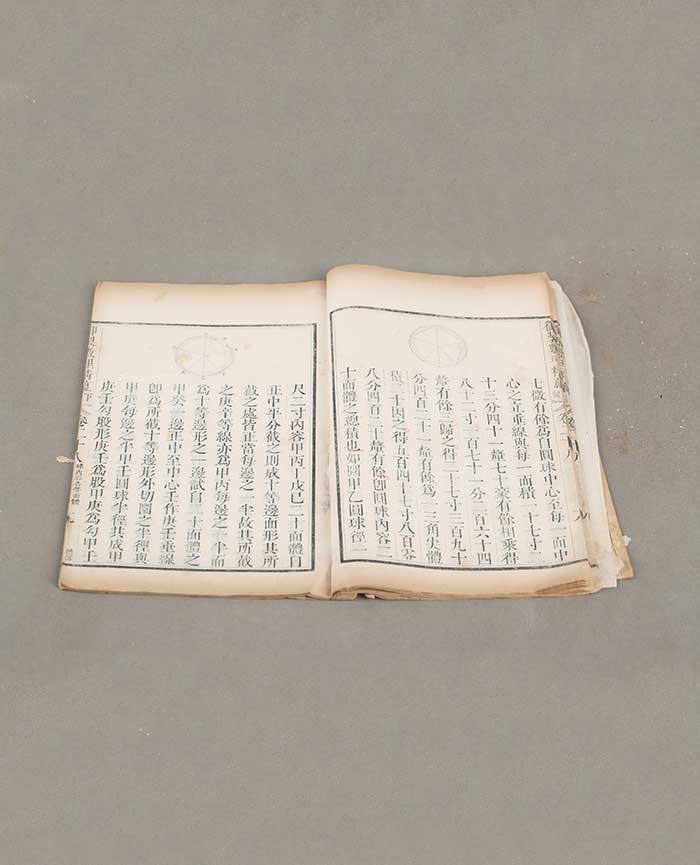 七微有餘爲自圓球中心至每一面中
心之立垂線與每一面積一十七寸
十三分四十一釐七十豪有餘相乘得
八十二寸一百七十一分二百六十四
釐有餘三歸之得二十七寸三百九十
分四百二十一釐有餘爲一三角尖體
積二十因之得五百四十七寸八百零
八分四百二十釐有餘卽圓球內容二
十面體之總積也如圖甲乙圓球徑一
尺二寸內容甲丙丁戊己二十面體自
正中平分截之則成十等邊面形其所
截之處皆正當每邊之一半故其所截
之庚辛等線亦爲甲丙每邊之一半而
爲十等邊形之一邊試自二十面體之
甲癸一邊正中至中心壬作庚壬垂線
卽爲所截十等邊形外切圜之半徑與
甲庚每邊之半甲壬圓球半徑共成甲
庚壬勾股形庚壬爲股甲庚爲勾甲壬